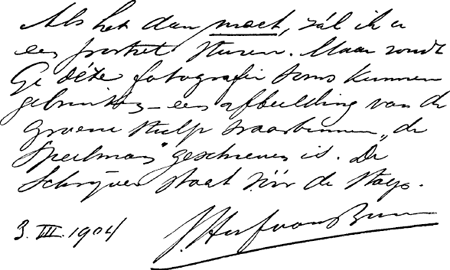 Als het dan moet, zàl ik u
een portret sturen. Maar zoudt
Ge déze fotografie soms kunnen
gebruiken – een afbeelding van de
groene stulp waarbinnen „de
Speelman” geschreven is. De
Schrijver staat vóór de stulp.
3. III. 1904